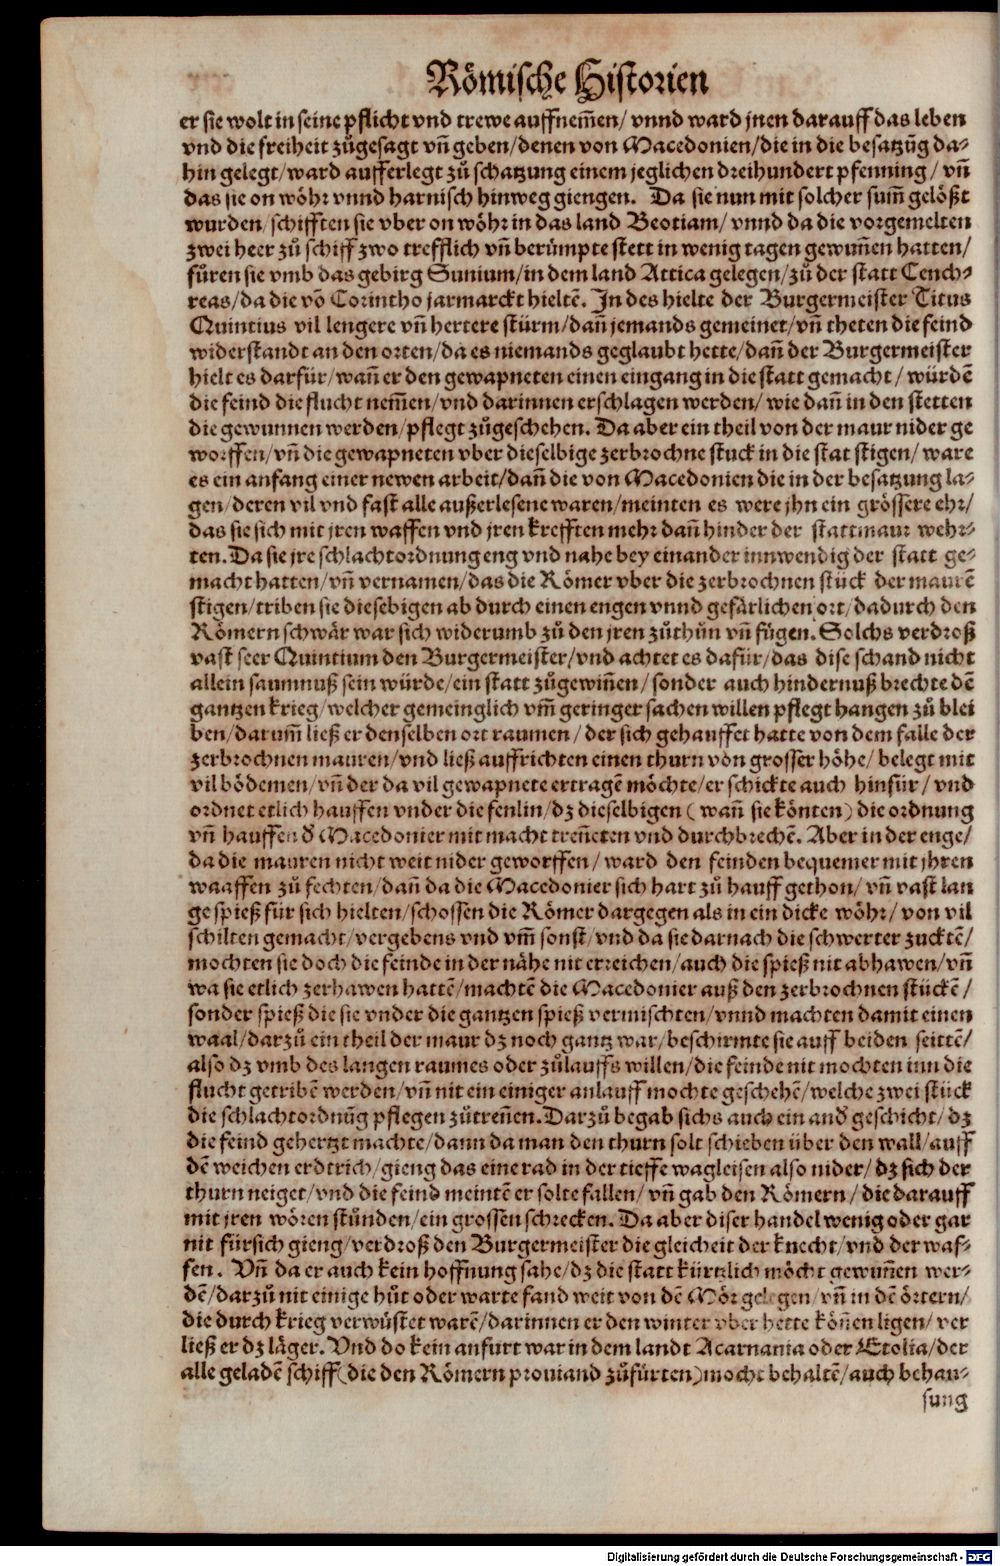 Römische Historien
er sie wolt in seine pflicht vnd trewe auffnem̃en/ vnnd ward jnen darauff das leben
vnd die freiheit zůgesagt vñ geben/denen von Macedonien/die in die besatzũg da-
hin gelegt/ward aufferlegt zů schatzung einem jeglichen dreihundert pfenning/ vñ
das sie on wöhr vnnd harnisch hinweg giengen. Da sie nun mit solcher sum̃ gelößt
wurden/schifften sie vber on wöhr in das land Beotiam/ vnnd da die vorgemelten
zwei heer zů schiff zwo trefflich vñ berůmpte stett in wenig tagen gewuñen hatten/
fůren sie vmb das gebirg Sunium/in dem land Attica gelegen/zů der statt Cench-
reas/da die võ Corintho jarmarckt hieltẽ. In des hielte der Burgermeister Titus
Quintius vil lengere vñ hertere stürm/dañ jemands gemeinet/vñ theten die feind
widerstandt an den orten/da es niemands geglaubt hette/dañ der Burgermeister
hielt es darfür/wañ er den gewapneten einen eingang in die statt gemacht/ würdẽ
die feind die flucht nem̃en/vnd darinnen erschlagen werden/ wie dañ in den stetten
die gewunnen werden/pflegt zůgeschehen. Da aber ein theil von der maur nider ge
worffen/vñ die gewapneten vber dieselbige zerbrochne stuck in die stat stigen/ ware
es ein anfang einer newen arbeit/dañ die von Macedonien die in der besatzung la-
gen/deren vil vnd fast alle außerlesene waren/meinten es were jhn ein grössere ehr/
das sie sich mit jren waffen vnd jren krefften mehr dañ hinder der stattmaur wehr-
ten. Da sie jre schlachtordnung eng vnd nahe bey einander innwendig der statt ge-
macht hatten/vñ vernamen/das die Römer vber die zerbrochnen stück der maurẽ
stigen/triben sie diesebigen ab durch einen engen vnnd gefärlichen ort/dadurch den
Römern schwär war sich widerumb zů den jren zůthůn vñ fůgen. Solchs verdroß
vast seer Quintium den Burgermeister/vnd achtet es dafür/das dise schand nicht
allein saumnuß sein würde/ein statt zůgewiñen/sonder auch hindernuß brechte dẽ
gantzen krieg/welcher gemeinglich vm̃ geringer sachen willen pflegt hangen zů blei
ben/darum̃ ließ er denselben ort raumen/der sich gehauffet hatte von dem falle der
zerbrochnen mauren/vnd ließ auffrichten einen thurn von grosser höhe/ belegt mit
vil bödemen/vñ der da vil gewapnete ertragẽ möchte/er schickte auch hinfür/ vnd
ordnet etlich hauffen vnder die fenlin/dz dieselbigen (wañ sie könten) die ordnung
vñ hauffen ď Macedonier mit macht treñeten vnd durchbrechẽ. Aber in der enge/
da die mauren nicht weit nider geworffen/ward den feinden bequemer mit jhren
waaffen zů fechten/dañ da die Macedonier sich hart zů hauff gethon/vñ vast lan
ge spieß für sich hielten/schossen die Römer dargegen als in ein dicke wöhr/von vil
schilten gemacht/vergebens vnd vm̃ sonst/vnd da sie darnach die schwerter zucktẽ/
mochten sie doch die feinde in der nähe nit erreichen/auch die spieß nit abhawen/vñ
wa sie etlich zerhawen hattẽ/machtẽ die Macedonier auß den zerbrochnen stückẽ/
sonder spieß die sie vnder die gantzen spieß vermischten/vnnd machten damit einen
waal/darzů ein theil der maur dz noch gantz war/beschirmte sie auff beiden seittẽ/
also dz vmb des langen raumes oder zůlauffs willen/die feinde nit mochten inn die
flucht getribẽ werden/vñ nit ein einiger anlauff mochte geschehẽ/welche zwei stück
die schlachtordnũg pflegen zůtreñen. Darzů begab sichs auch ein anď geschicht/dz
die feind gehertzt machte/dann da man den thurn solt schieben über den wall/auff
dẽ weichen erdtrich/gieng das eine rad in der tieffe wagleisen also nider/dz sich der
thurn neiget/vnd die feind meintẽ er solte fallen/vñ gab den Römern/die darauff
mit jren wören stůnden/ein grossen schrecken. Da aber diser handel wenig oder gar
nit fürsich gieng/verdroß den Burgermeister die gleicheit der knecht/vnd der waf-
fen. Vñ da er auch kein hoffnung sahe/dz die statt kürtzlich möcht gewuñen wer-
dẽ/darzů nit einige hůt oder warte fand weit von dẽ Mör gelegen/vñ in dẽ örtern/
die durch krieg verwůstet warẽ/darinnen er den winter vber hette köñen ligen/ver
ließ er dz läger. Vnd do kein anfurt war in dem landt Acarnania oder Etolia/der
alle geladẽ schiff (die den Römern prouiand zůfürten) mocht behaltẽ/auch behau-
sung
Digitalisierung gefördert durch die Deutsche Forschungsgemeinschaft - DFG